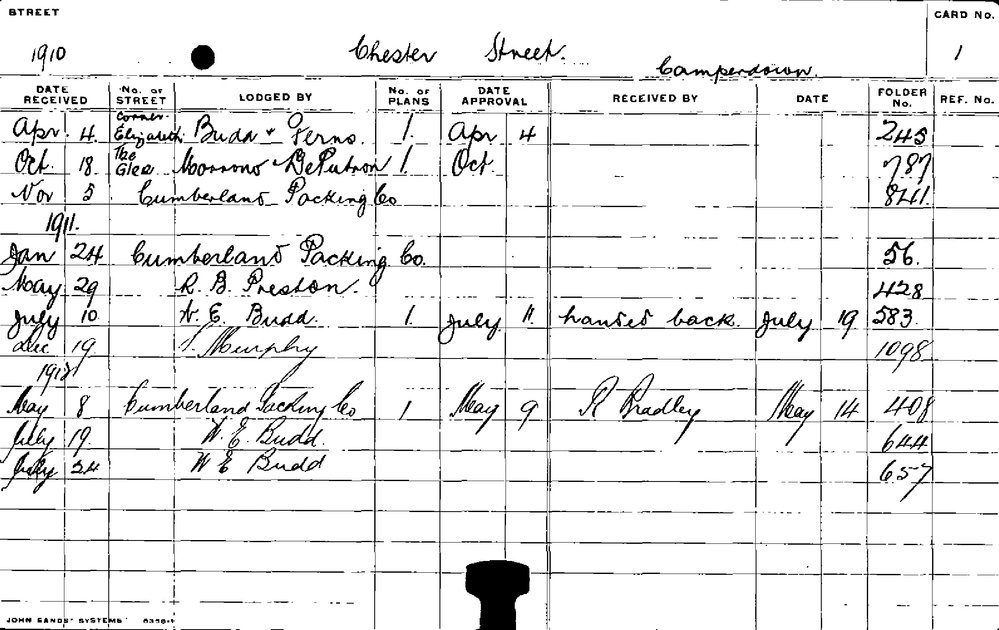 STREET CARD No.
1910 Chester Street. Camperdown. 1
DATE RECEIVED No. OF STREET LODGED BY No. OF PLANS DATE APPROVAL RECEIVED BY DATE FOLDER No. REF. No.
Apr 4 Corner Elizabeth Budd + 1 Apr 4 245
Oct 18 The Glee 1 Oct. 787
Nov 5 Cumberland Packing Co 841
1911
Jan 24 Cumberland Packing Co. 56
May 29 R. B. Preston. 428
July 10 W. E. Budd 1 July 11 handed back. July 19 583
Dec 19 Murphy 1098
1912
May 8 Cumberland Packing Co 1 May 9 R Bradley May 14 408
July 19 W. E. Budd. 644
July 24 W E Budd 657
JOHN SANDS' SYSTEMS